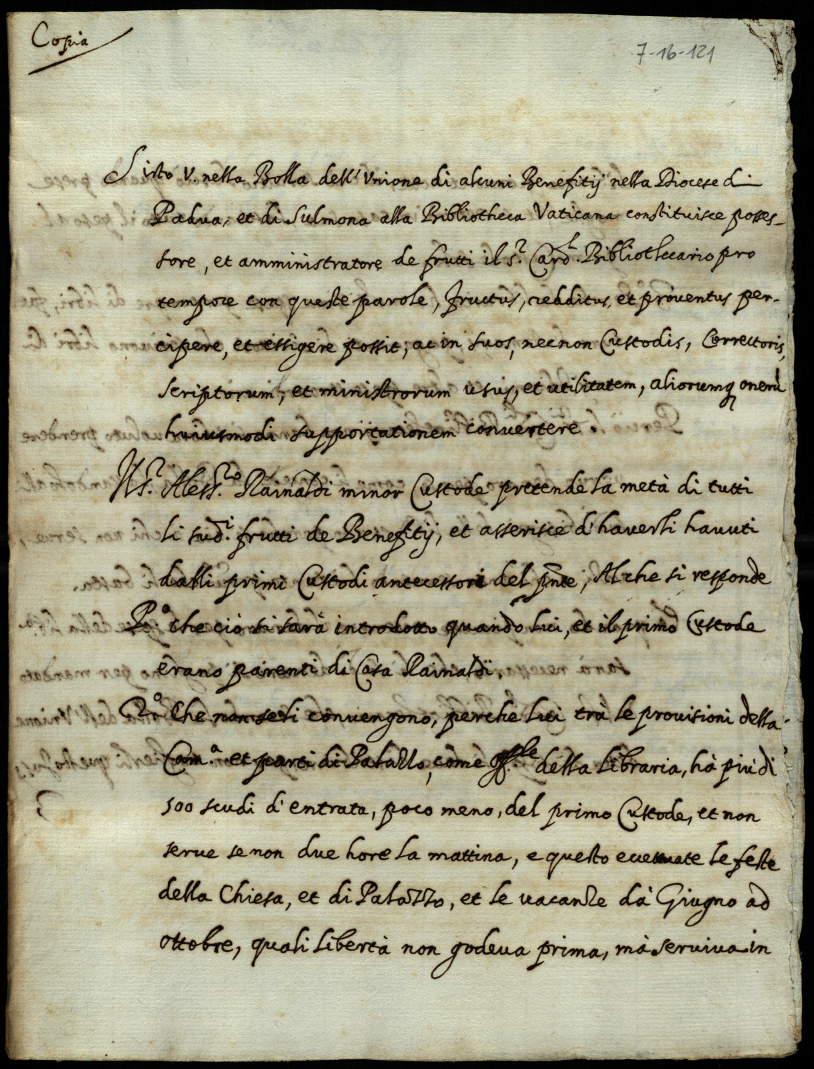 Copia
7-16-121
Sisto V. nella Bolla dell'Unione di alcuni Benefitij nella Diocese di
Padua, et di Sulmona alla Bibliotheca Vaticana constituisce posses-
sore, et amministratore de frutti il s.r Card.l Bibliothecario pro
tempore con queste parole, fructus, redditus, et proventus per-
cipere, et essigere possit, ac in suos, necnon Custodis, Correctoris,
scriptorum, et ministrorum usus, et utilitatem, aliorumq onerũ
huiusmodi supportationem convertere.
Il s.r Aless.ro Rainaldi minor Custode pretende la metà di tutti
li sud.i frutti de Benefitij, et asserisce d'haverli havuti
dalli primi Custodi antecessori del pñte, Alche si responde
P.o che ciò si sarà introdotto quando lui, et il primo Custode
erano parenti di Casa Rainaldi,
2.o Che non seli convengono, perche lui trà le provisioni della
Cam.a et parti di Palazzo, come della Libraria, hà più di
500 scudi d'entrata, poco meno, del primo Custode, et non
serve se non due hore la mattina, e questo eccettuate le feste
della Chiesa, et di Palazzo, et le vacanze dà Giugno ad
ottobre, quali libertà non godeva prima, mà serviva in